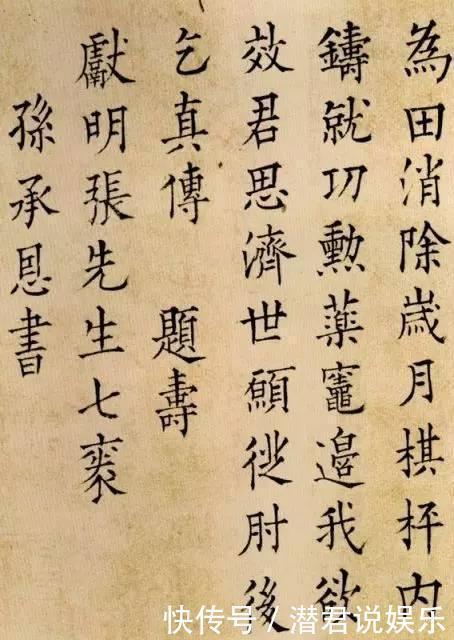 為田消除歲月棋枰内
鑄就功勲藥竈邉我欲
效君思濟世願從肘後
乞真傳 題壽
獻明張先生七袠
孫承恩書
快传号/潜君说娱乐